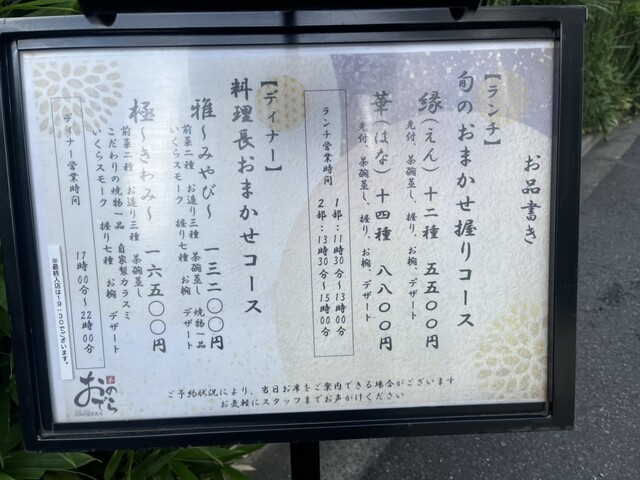 お品書き
【ランチ】
旬のおまかせ握りコース
縁(えん) 十二種 五五〇〇円
先付、茶碗蒸し、握り、お椀、デザート
華(はな) 十四種 八八〇〇円
先付、茶碗蒸し、握り、お椀、デザート
ランチ営業時間
1部:11時30分~13時00分
2部:13時30分~15時00分
【ディナー】
料理長おまかせコース
雅~みやび~ 一三二〇〇円
前菜二種 お造り三種 茶碗蒸し 焼物一品
いくらスモーク 握り七種 お椀 デザート
極~きわみ~ 一六五〇〇円
前菜二種 お造り三種 茶碗蒸し
こだわりの焼物一品 自家製カラスミ
いくらスモーク 握り七種 お椀 デザート
ディナー営業時間
17時00分~22時00分
※最終入店は19:30でございます。
おのでら
ONODERA
ご予約状況により、当日お席をご案内できる場合がございます
お気軽にスタッフまでお声がけください